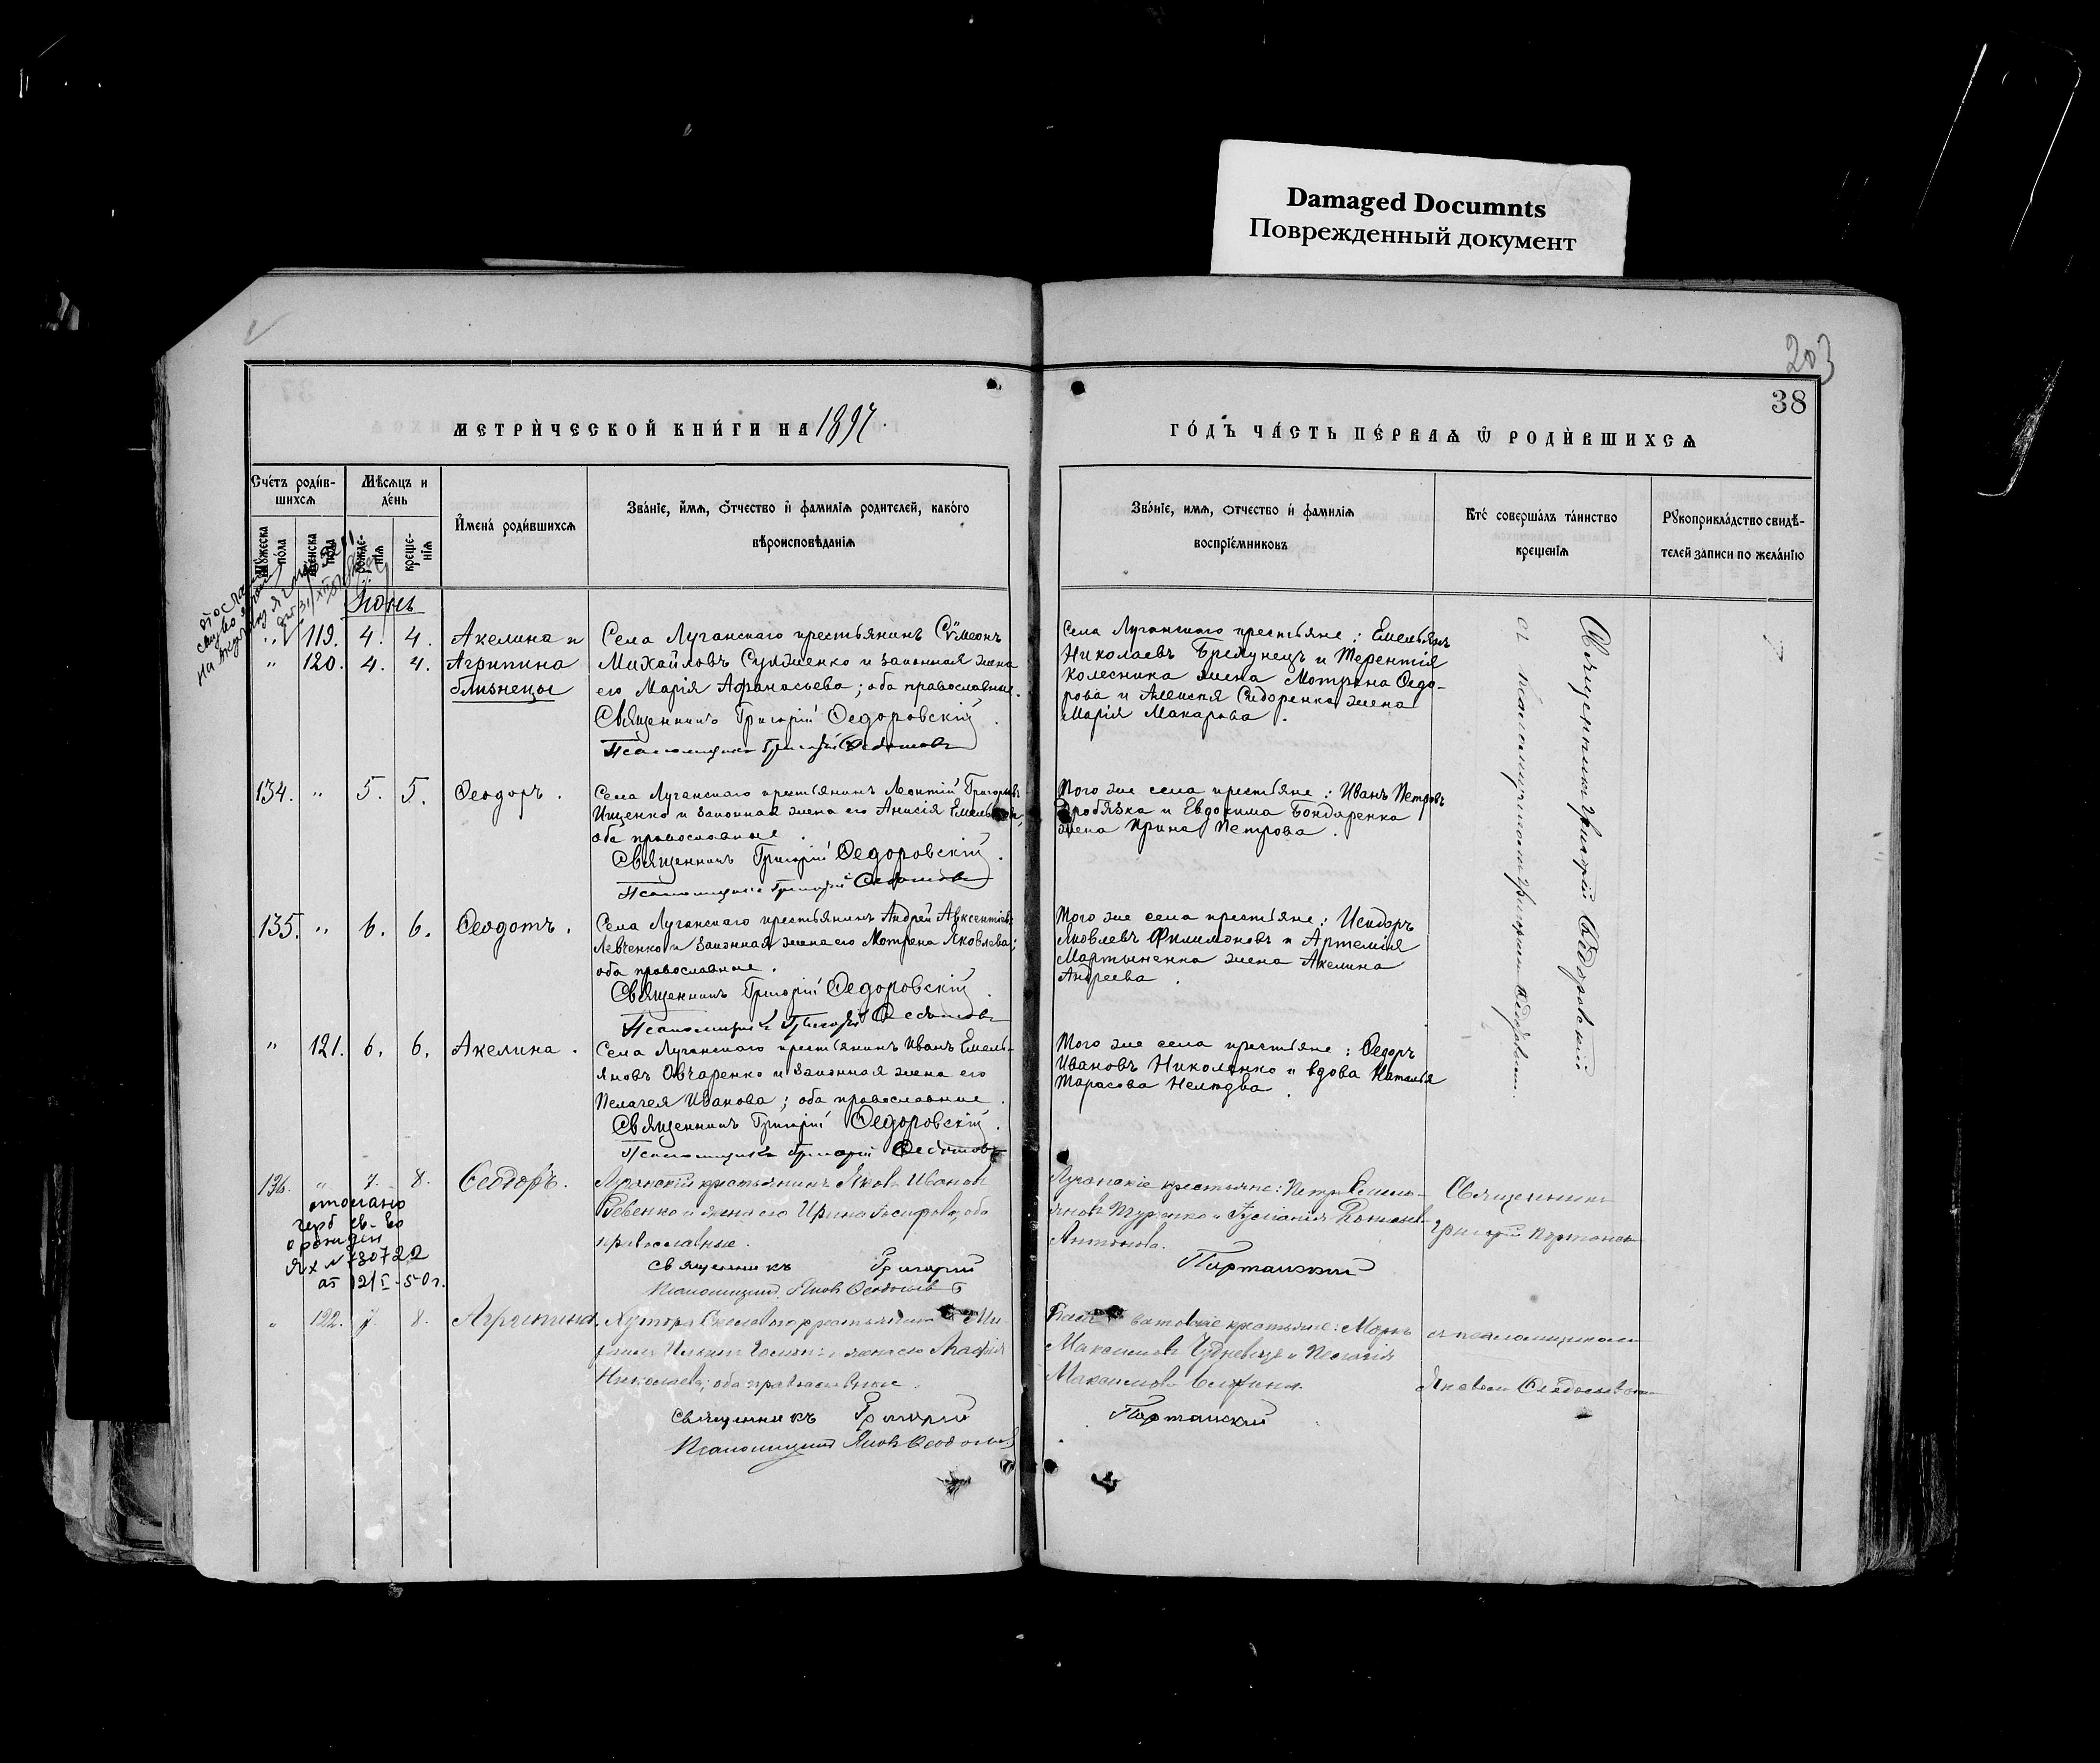 Damaged Documnts
Поврежденный документ
203
38
МЕТРИ́ЧЕСКОЙ КНИ́ГИ НА 1897.
ГО́ДЪ ЧА́СТЬ ПЕ́РВАѦ Ѿ РОДИ́ВШИХСѦ
Сче́тъ роди́в-
шихсѧ
Мѣ́сѧцъ и
де́нь
Мꙋ́жеска
по́ла
Же́нска
по́ла
рожде-
нїѧ
креще-
нїѧ
И҆мена̀ роди́вшихсѧ
Зва́нїе, и҆́мѧ, ѻ҆́тчество и҆ фамилїѧ роди́телей, како́го
вѣроисповѣ́данїѧ
Зва́нїе, имѧ, ѻтчество и҆ фамилїѧ
воспрїе́мниковъ
Кто̀ соверша́лъ та́инство
креще́нїѧ
Рꙋкоприкла́дство свидѣ́-
телей за́писи по жела́нїю
Іюнь
" 119. 4. 4. Акелина и
" 120. 4. 4. Агрипина
близнецы
Села Луганскаго крестьянинъ Сѵмеонъ
Михайловъ Сукженко и законная жена
его Марія Афанасьева; оба православные.
Священникъ Григорій Ѳедоровскій.
Псаломщикъ Григорій
Села Луганскаго крестьяне: Емельянъ
Николаевъ Бремунецъ и Терентія
Колесника жена Мотрона Ѳедо-
рова и Алексія Сидоренка жена
Марія Макарова.
Священникъ Григорій Ѳедоровскій
съ псаломщикомъ Григоріемъ
134. " 5. 5. Ѳеодоръ.
Села Луганскаго крестьянинъ Леонтій Григорьевъ
Ищенко и законная жена его Анисія
оба православные.
Священникъ Григорій Ѳедоровскій.
Псаломщикъ Григорій
Того же села крестьяне: Иванъ Петровъ
и Евдокима Бондаренка
жена Ирина Петрова.
135. " 6. 6. Ѳеодотъ.
Села Луганскаго крестьянинъ Андрей Авксентіевъ
Левченко и законная жена его Мотрена Яковлева;
оба православные.
Священникъ Григорій Ѳедоровскій.
Псаломщикъ Григорій
Того же села крестьяне: Исидоръ
Яковлевъ Филимоновъ и Артемія
Мартыненка жена Акелина
Андреева.
" 121. 6. 6. Акелина.
Села Луганскаго крестьянинъ Иванъ Емель-
яновъ Овчаренко и законная жена его
Пелагея Иванова; оба православные.
Священникъ Григорій Ѳедоровскій.
Псаломщикъ Григорій
Того же села крестьяне: Ѳедоръ
Ивановъ Николенко и вдова Наталья
Тарасова
136. " 7. 8. Ѳеодоръ.
отослано
герб св-во
о рожден
ЯХ № 730722
от 21/I-50 г.
Луганскій крестьянинъ Яковъ Ивановъ
Ревенко и жена его Ирина Іосифова; оба
православные.
Священникъ Григорій
Псаломщикъ Яковъ
Луганскіе крестьяне: Петръ Емель-
яновъ и
Антонова.
Портанскій
Священникъ
Григорій Портанскій
" 122. 7. 8. Агрипина.
Хутора крестьянинъ
и жена его Агафія
Николаева; оба православные.
Священникъ Григорій
Псаломщикъ Яковъ
крестьяне: Маркъ
Максимовъ и Пелагія
Максимова
Портанскій
съ псаломщикомъ
Яковомъ